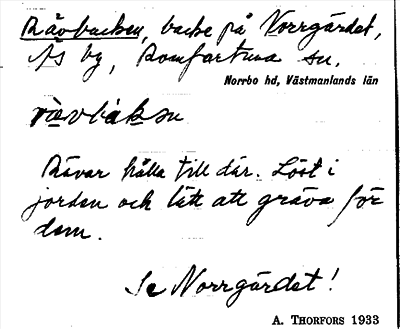 Rävbacken, backe på Norrgärdet,
Ås by, Romfartuna sn.
Norrbo hd, Västmanlands län
rävbakən
Rävar hålla till där. Löst i
jorden och lätt att gräva för
dem.
Se Norrgärdet!
A. THORFORS 1933